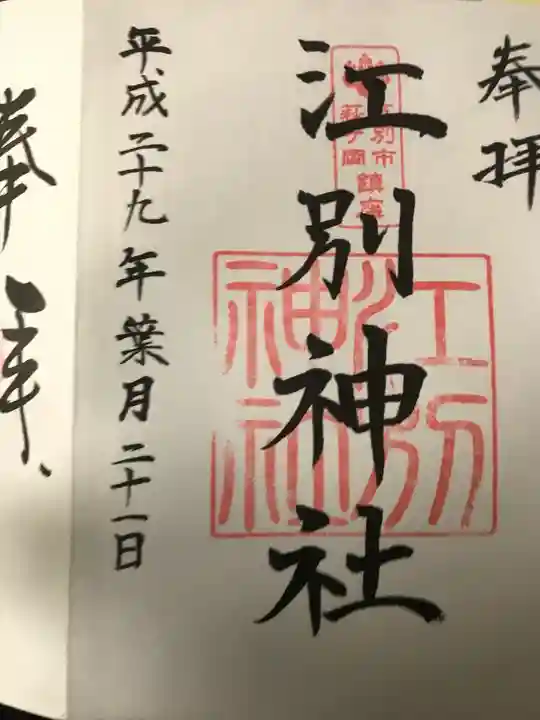 奉拝
江別市
萩ヶ岡
鎮座
江別
神社
江別神社
平成二十九年葉月二十一日
奉拝